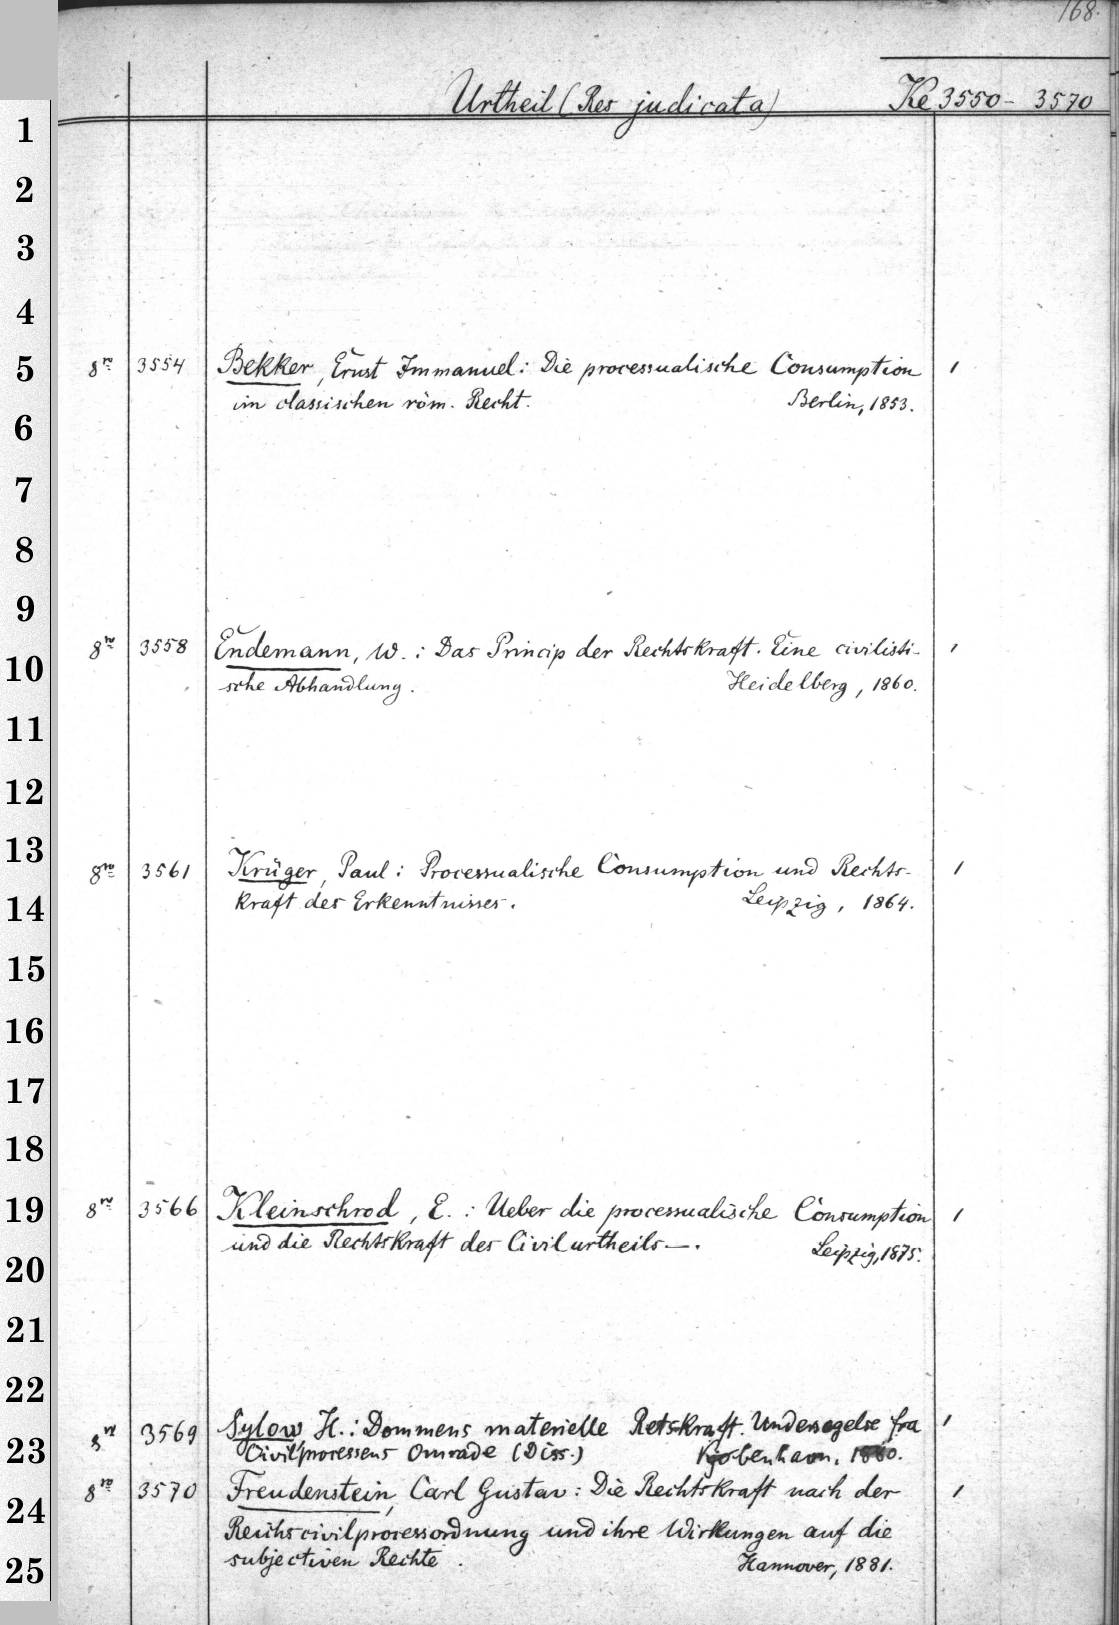 168.
Urtheil (Res judicata) Ke 3550 - 3570
1
2
3
4
5
6
7
8
9
10
11
12
13
14
15
16
17
18
19
20
21
22
23
24
25
8re 3554 Bekker, Ernst Immanuel: Die processualische Consumption 1
im classischen röm. Recht. Berlin, 1853.
8re 3558 Endemann, W.: Das Princip der Rechtskraft. Eine civilisti-
sche Abhandlung. Heidelberg, 1860. 1
8re 3561 Krüger, Paul: Processualische Consumption und Rechts- 1
kraft des Erkenntnisses. Leipzig, 1864.
8re 3566 Kleinschrod, E.: Ueber die processualische Consumption 1
und die Rechtskraft des Civilurtheils—. Leipzig, 1875.
8re 3569 Sylow H.: Dommens materielle Retskraft. Undersøgelse fra 1
Civilprocessens Omrade (Diss.) Kjøbenhavn,
8re 3570 Freudenstein, Carl Gustav: Die Rechtskraft nach der 1
Reichscivilprocessordnung und ihre Wirkungen auf die
subjectiven Rechte. Hannover, 1881.